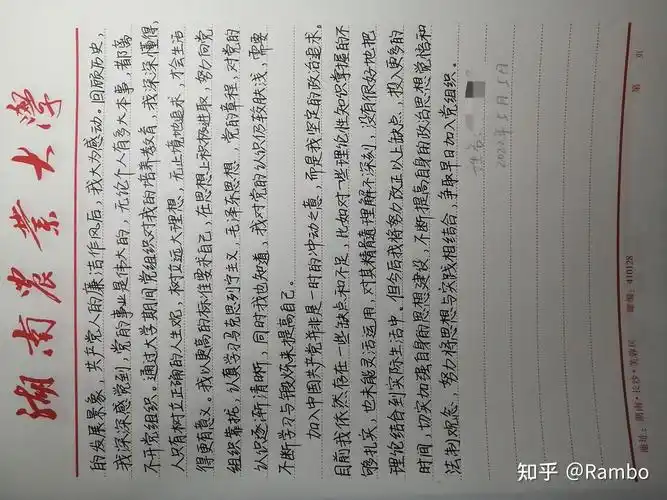 湖南农业大学
的发展景象，共产党人的廉洁作风后，我大为感动。回顾历史，
我深深感觉到，党的事业是伟大的，无论个人有多大本事，都离
不开党组织。通过大学期间党组织对我的培养教育，我深深懂得，
人只有树立正确的人生观，树立远大理想，无止境地追求，才会生活
得更有意义。我以更高的标准要求自己，在思想上积极进取，努力向党
组织靠拢，认真学习马克思列宁主义、毛泽东思想、党的章程，对党的
认识逐渐清晰，同时我也知道，我对党的认识仍较肤浅，需要
不断学习与锻炼来提高自己。
加入中国共产党并非是一时的冲动之意，而是我坚定的政治追求。
目前我依然存在一些缺点和不足，比如对一些理论性知识掌握的不
够扎实，也未能灵活运用，对其精髓理解不深刻，没有很好地把
理论结合到实际生活中。但今后我将努力改正以上缺点，投入更多的
时间，切实加强自身的思想建设，不断提高自身的政治思想觉悟和
法制观念，努力将思想与实践相结合，争取早日加入党组织。
2022年5月5日
地址：湖南·长沙·芙蓉区
邮编：410128
第 页
知乎 @Rambo